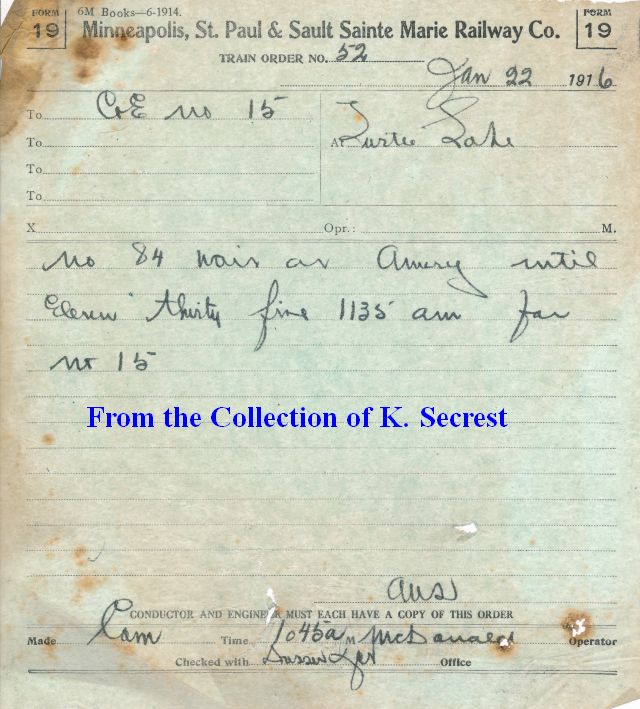 FORM 19
6M Books—6-1914.
FORM 19
Minneapolis, St. Paul & Sault Sainte Marie Railway Co.
TRAIN ORDER NO. 52
Jan 22 1916
To C&E no 15
At Turtle Lake
To
To
To
X Opr.: M.
no 84 wait at Amery until
Eleven thirty five 1135 am for
no 15
From the Collection of K. Secrest
CONDUCTOR AND ENGINEER MUST EACH HAVE A COPY OF THIS ORDER
Made Com Time 1045a M McDonald Operator
Checked with Office